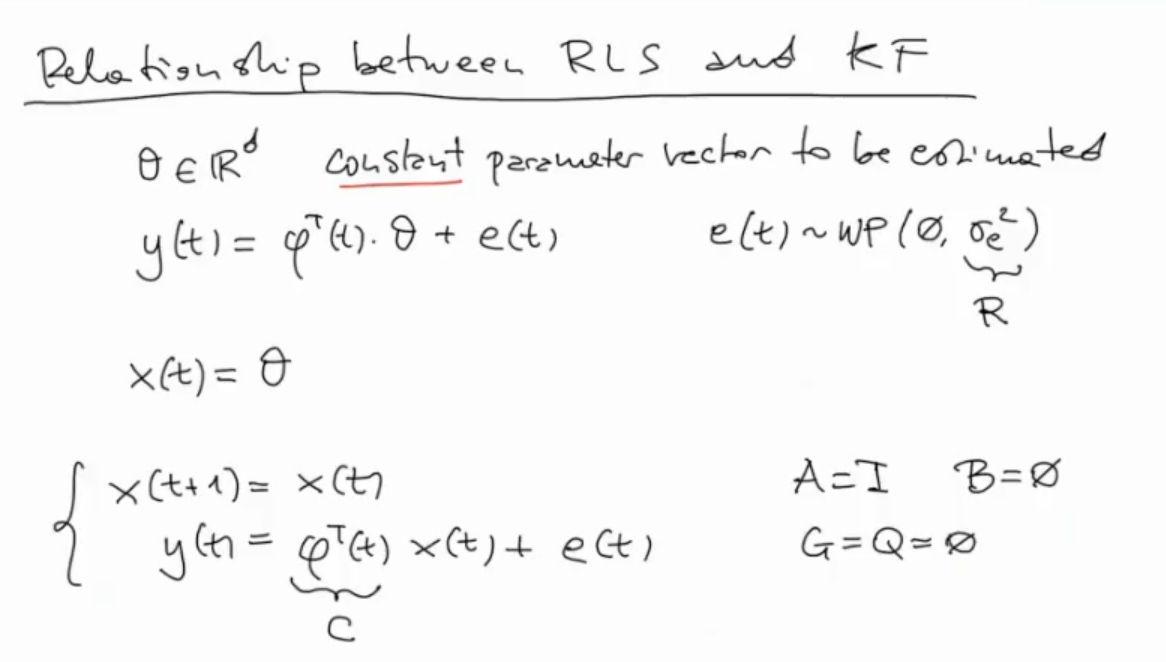 Relationship between RLS and KF
θ ∈ ℝ^d constant parameter vector to be estimated
y(t) = φ^T(t) · θ + e(t) e(t) ~ WP(∅, σ_e^2)
R
x(t) = θ
x(t+1) = x(t) A=I B=∅
y(t) = φ^T(t) x(t) + e(t) G=Q=∅
C